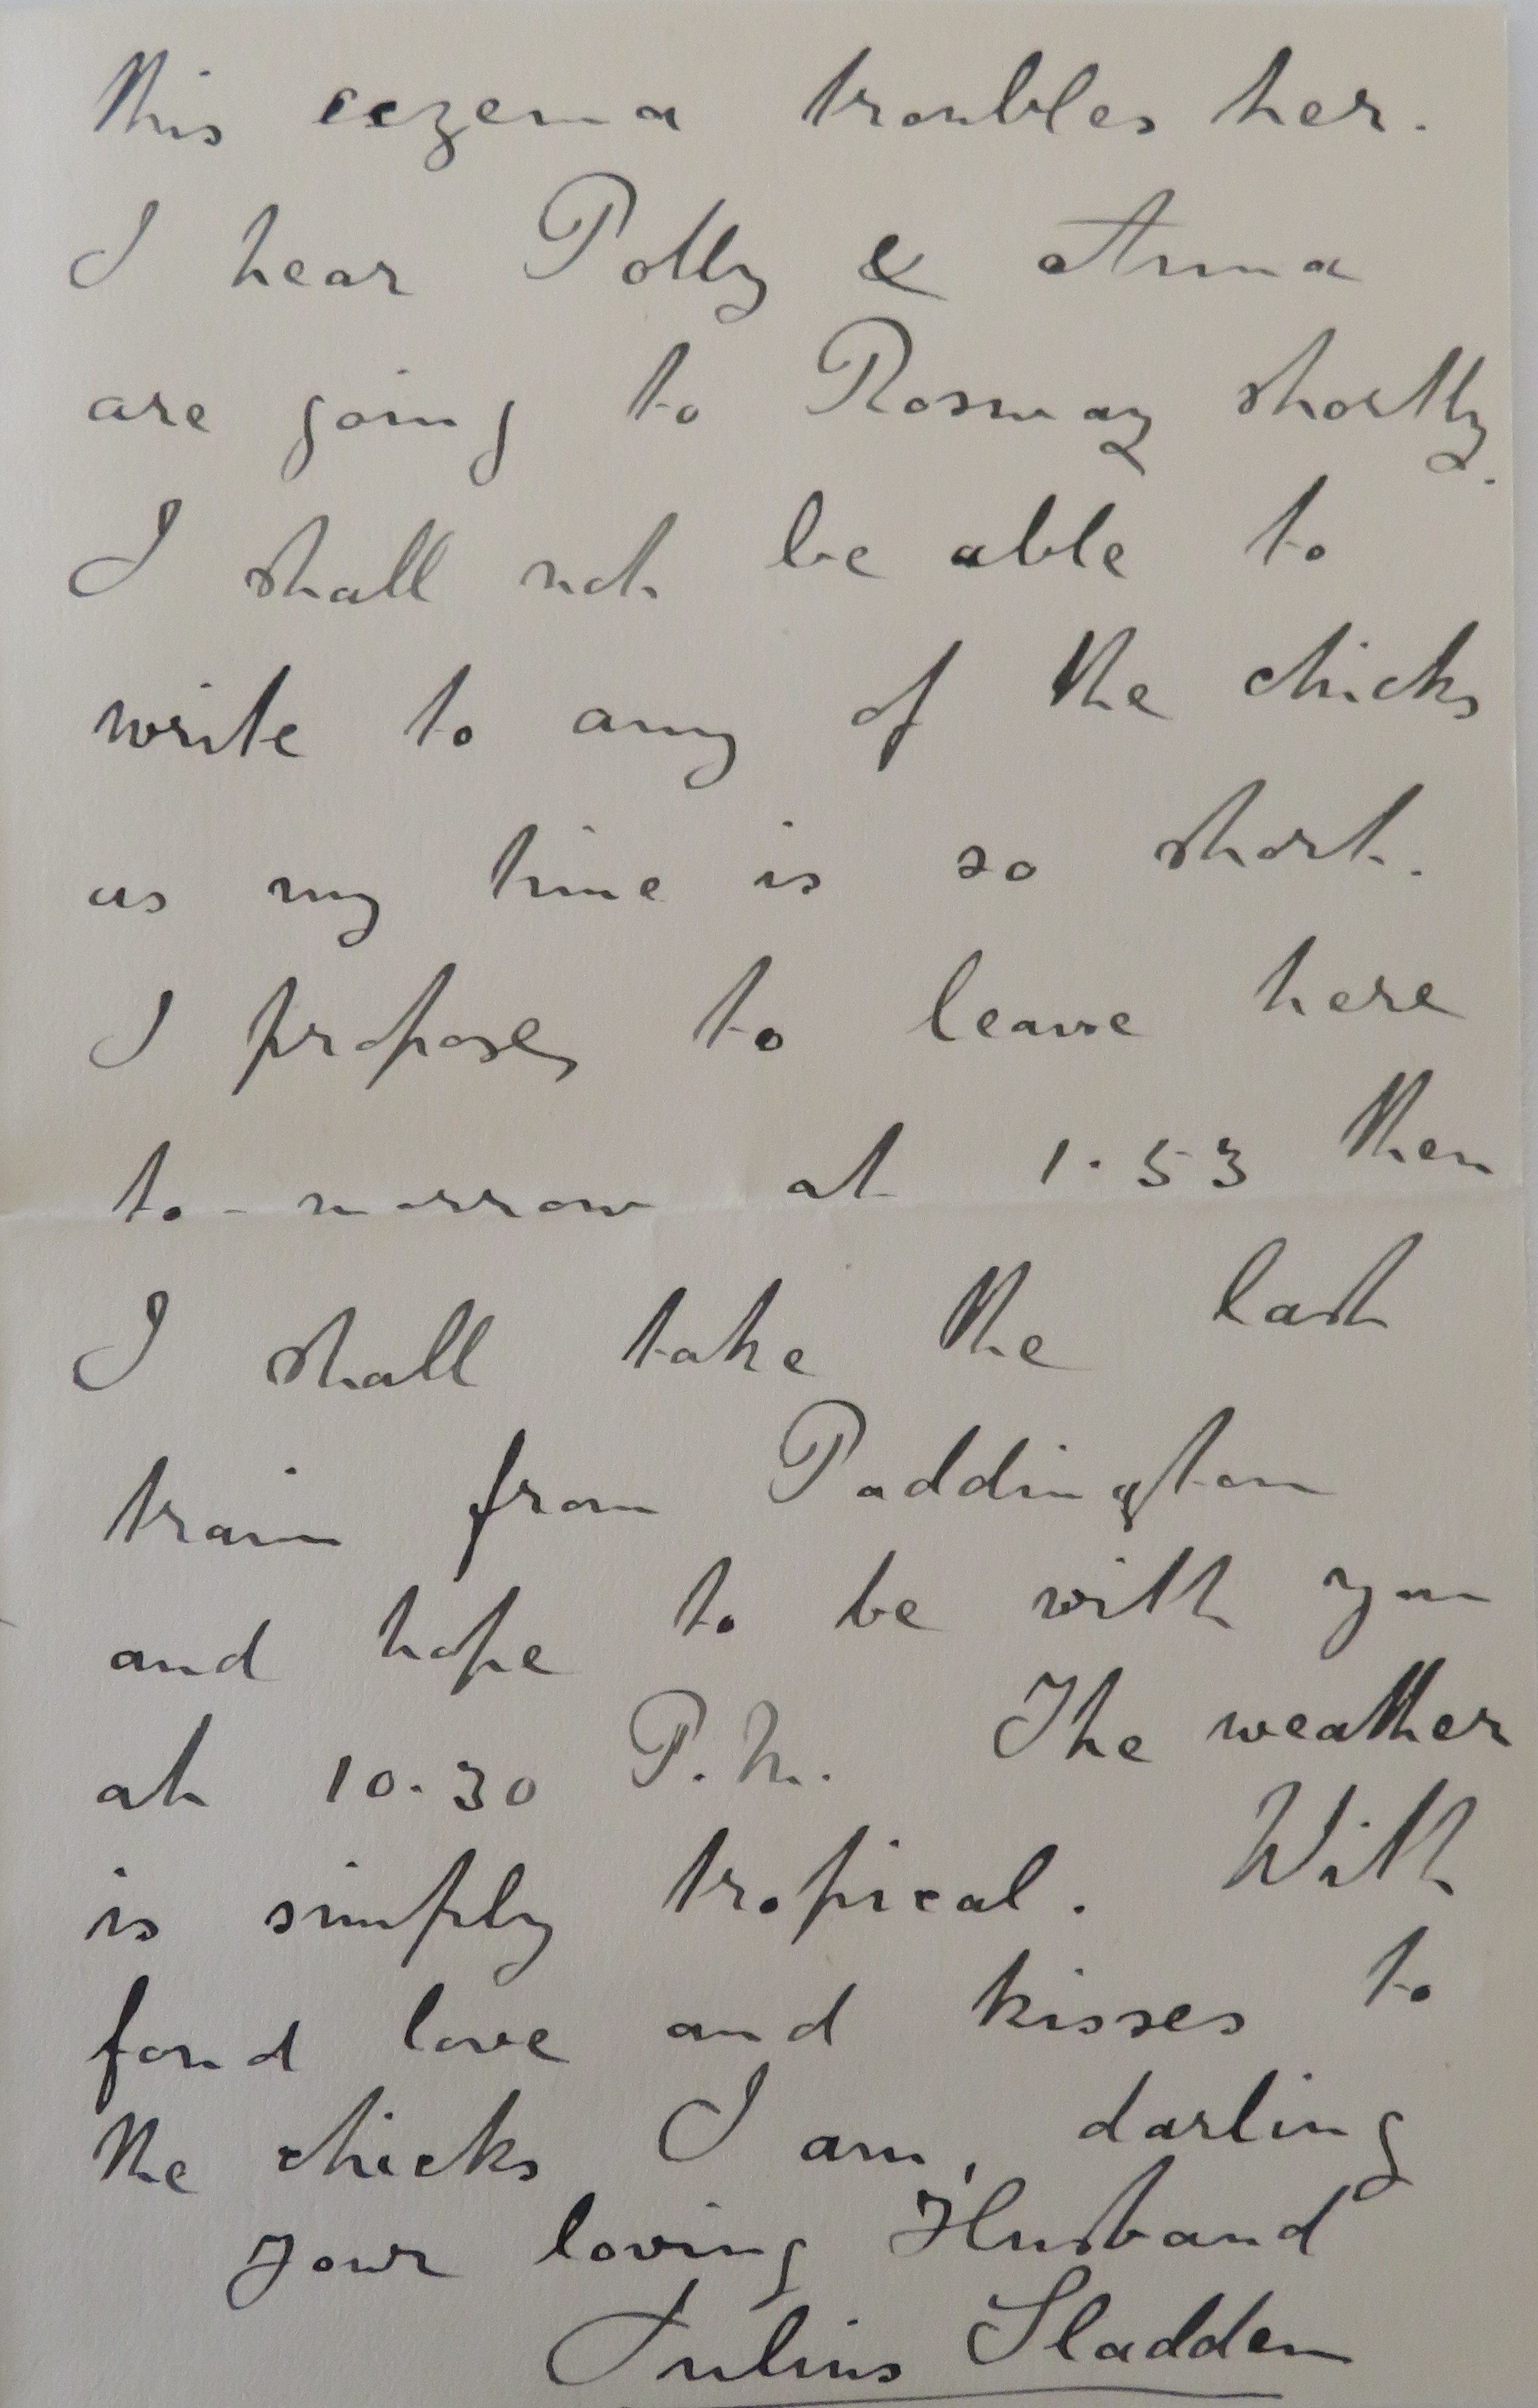 This eczema troubles her.
I hear Polly & Anna
are going to Rosmay shortly.
I shall not be able to
write to any of the chicks
as my time is so short.
I propose, to leave here
to-morrow at 1.53 then
I shall take the last
train from Paddington
and hope to be with you
at 10.30 P.M. The weather
is simply tropical. With
fond love and kisses to
the chicks I am, darling
your loving Husband
Julius Sladden